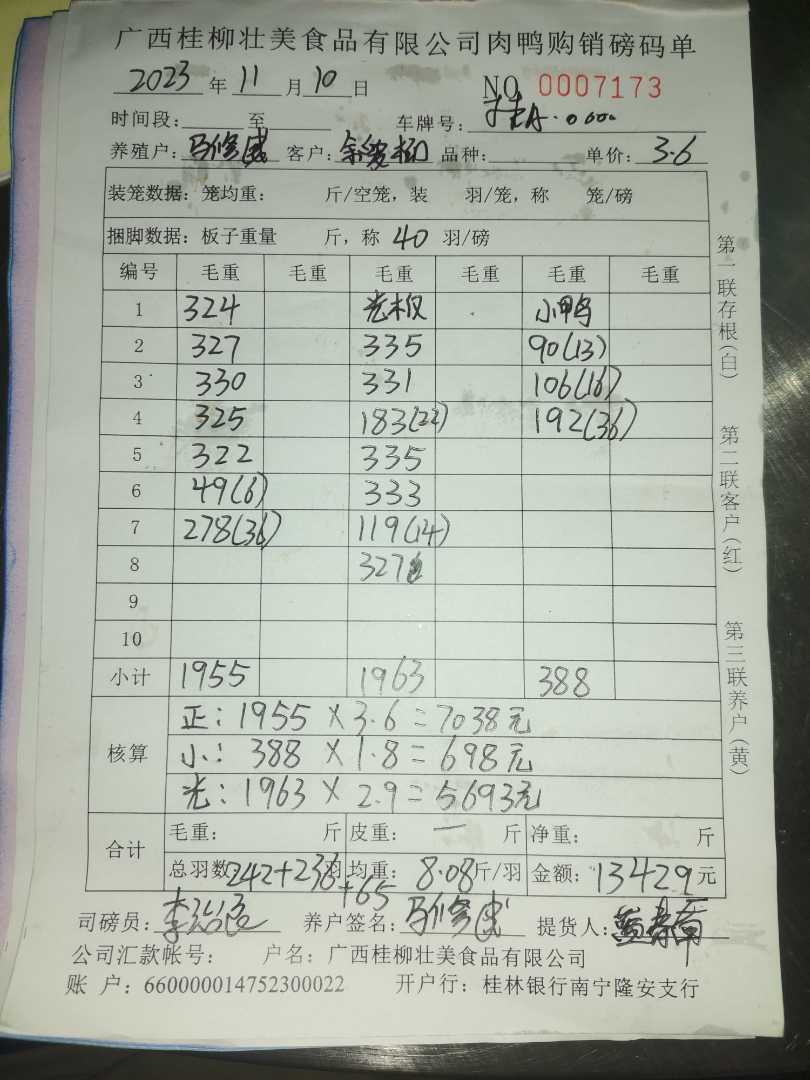 广西桂柳壮美食品有限公司肉鸭购销磅码单
2023 年 11 月 10 日 NO 0007173
时间段: 至 车牌号: A·0000
养殖户: 马修 客户: 品种: 单价: 3.6
装笼数据: 笼均重: 斤/空笼, 装 羽/笼, 称 笼/磅
捆脚数据: 板子重量 斤, 称 40 羽/磅
编号 毛重 毛重 毛重 毛重 毛重 毛重
1 324 光板 小鸭
2 327 335 90(13)
3 330 331 106(16)
4 325 183(22) 192(36)
5 322 335
6 49(6) 333
7 278(36) 119(14)
8 327
9
10
小计 1955 1963 388
核算 正: 1955 × 3.6 = 7038元
小: 388 × 1.8 = 698元
光: 1963 × 2.9 = 5693元
合计 毛重: 斤 皮重: — 斤 净重: 斤
总羽数: 242+236+65 羽 均重: 8.08 斤/羽 金额: 13429 元
司磅员: 李 养户签名: 马修 提货人:
公司汇款帐号: 户名: 广西桂柳壮美食品有限公司
账 户: 660000014752300022 开户行: 桂林银行南宁隆安支行
第一联存根(白) 第二联客户(红) 第三联养户(黄)